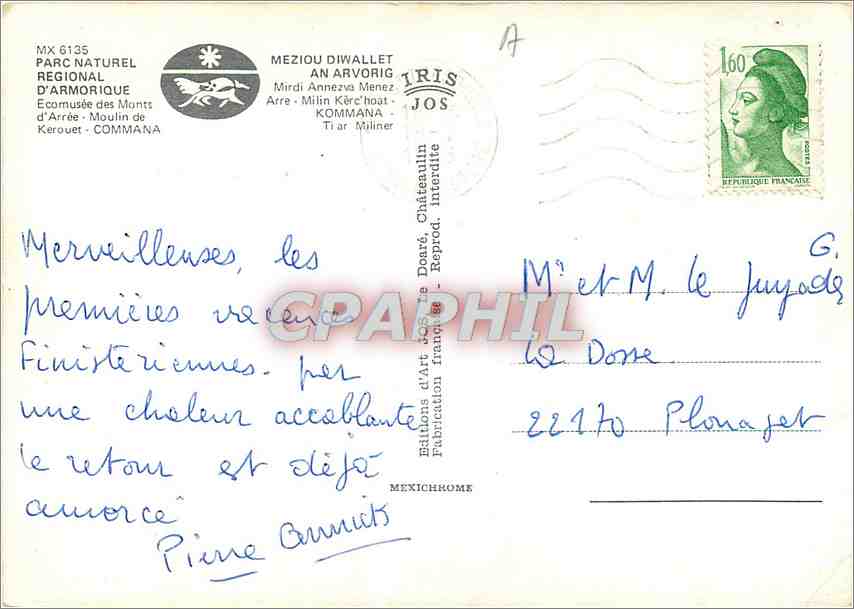 MX 6135
PARC NATUREL
REGIONAL
D'ARMORIQUE
Ecomusée des Monts
d'Arrée - Moulin de
Kerouet - COMMANA
MEZIOU DIWALLET
AN ARVORIG
Mirdi Annezva Menez
Arre - Milin Kêrc'hoat -
KOMMANA -
Ti ar Miliner
IRIS
JOS
A
1,60
POSTES
REPUBLIQUE FRANÇAISE
Editions d'Art JOS Le Doaré, Châteaulin
Fabrication française - Reprod. interdite
MEXICHROME
Merveilleuses, les
premières vacances
Finistériennes. par
une chaleur accablante
le retour est déjà
amorcé
Pierre Annick
G.
Mr et M. le
La Dosse
22170 Plouagat
CPAPHIL